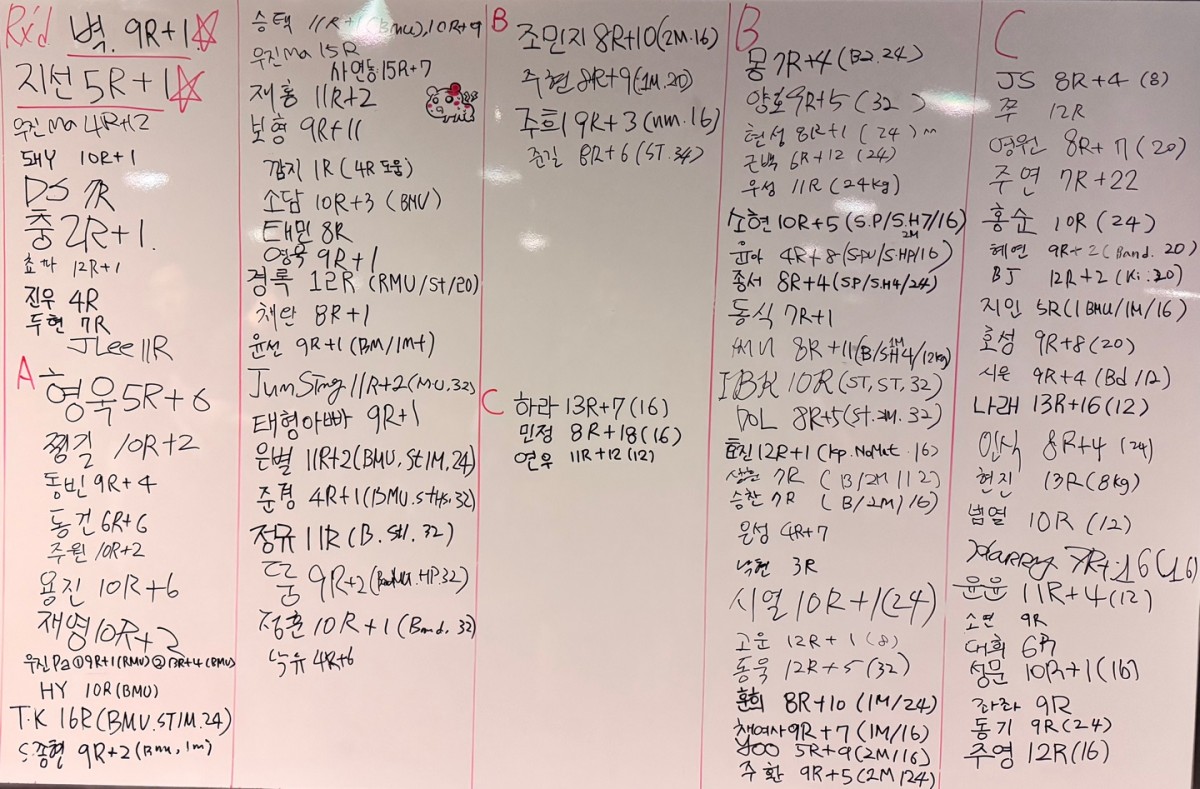 Rx'd 벽. 9R+1
지선 5R+1
우진Ma 4R+12
돼Y 10R+1
DS 7R
충 2R+1.
쵸파 12R+1
진우 4R
두현 7R
JLee 11R
A 형욱 5R+6
찡길 10R+2
동빈 9R+4
동건 6R+6
주원 10R+2
용진 10R+6
재영 10R+2
우진Pa ①9R+1(RMU) ②13R+4(BMU)
HY 10R(BMU)
T.K 16R(BMU.ST1M.24)
S종현 9R+2(Bmu, 1m)
승택 11R+1(Bmu), 10R+9
우진Ma 15R
사연동 15R+7
재홍 11R+2
보형 9R+11
깜지 1R(4R도움)
소담 10R+3 (BMU)
태민 8R
영욱 9R+1
경록 12R (RMU/St/20)
채란 8R+1
윤선 9R+1(BM/1m+)
JunSung 11R+2(MU,32)
태형아빠 9R+1
은별 11R+2(BMU.St1M,24)
준경 4R+1(BMU.stHs.32)
정규 11R(B.StI.32)
둠 9R+2(BandMU.HP.32)
정훈 10R+1(Band,32)
낙유 4R+6
B
조민지 8R+10(2M.16)
주현 8R+9(1M.20)
주희 9R+3(nm.16)
준길 8R+6(ST.34)
C 하라 13R+7(16)
민정 8R+18(16)
연우 11R+12(12)
B
몽 7R+4(B2.24)
양호 9R+5(32)
현성 8R+1(24)
근백 6R+12(24)
우성 11R(24kg)
소현 10R+5(S.P/S.H7/16)
윤아 4R+8(SPU/S.HP/16)
2M
종서 8R+4(SP/S.H4/24)
동식 7R+1
8R+11(B/SH4/12kg)
1M
IBK 10R(ST,ST,32)
DOL 8R+5(St.2M.32)
효진 12R+1(Kp.NoMat.16)
7R (B/2M/12)
승찬 7R (B/2M/16)
은성 4R+7
낙현 3R
시열 10R+1(24)
고운 12R+1(8)
동욱 12R+5(32)
훈희 8R+10(1M/24)
채여사 9R+7(1M/16)
YOO 5R+9(2M/16)
주환 9R+5(2M/24)
C
JS 8R+4(8)
쭈 12R
영원 8R+7(20)
주연 7R+22
홍순 10R(24)
혜연 9R+2(Band.20)
BJ 12R+2(Ki.20)
지인 5R(1BMU/1M/16)
호성 9R+8(20)
시은 9R+4(Bd/12)
나래 13R+16(12)
인식 8R+4(24)
현진 13R(8kg)
범열 10R(12)
Harry 7R+16(16)
윤운 11R+4(12)
소연 9R
대희 6R
성문 10R+1(16)
좌좌 9R
동기 9R(24)
주영 12R(16)